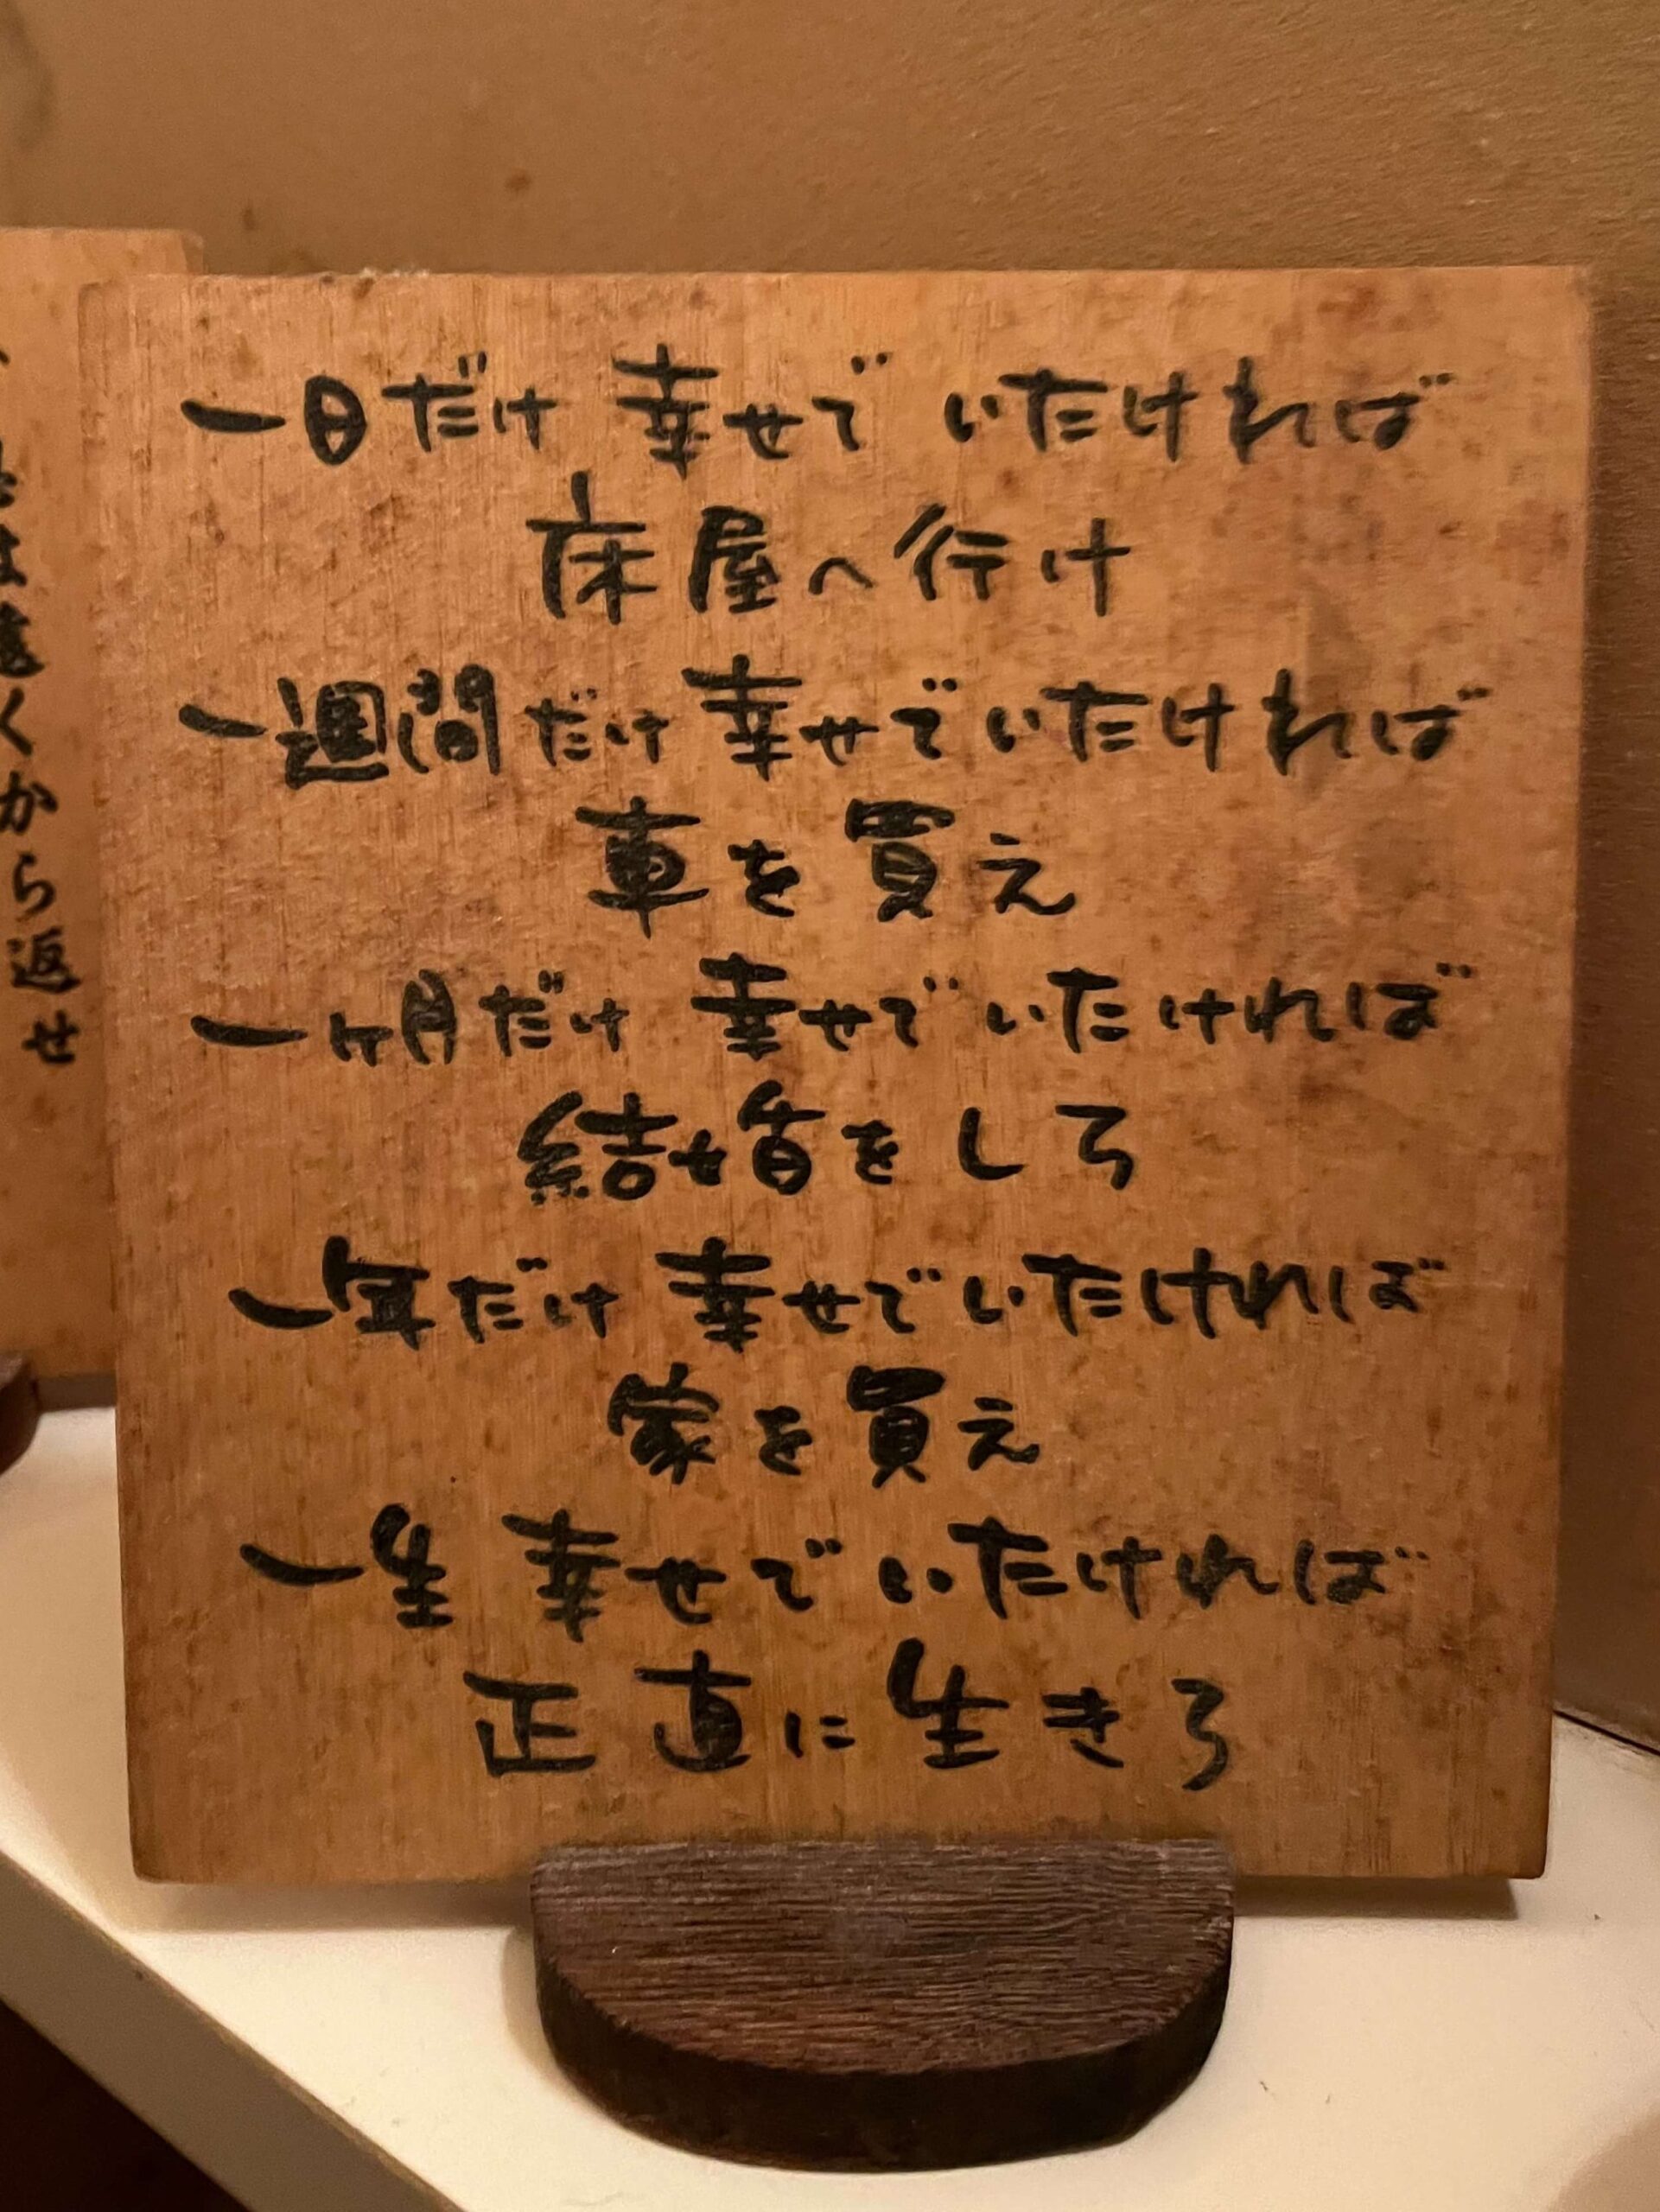 一日だけ幸せでいたければ
床屋へ行け
一週間だけ幸せでいたければ
車を買え
一ヶ月だけ幸せでいたければ
結婚をしろ
一年だけ幸せでいたければ
家を買え
一生幸せでいたければ
正直に生きろ
くから返せ